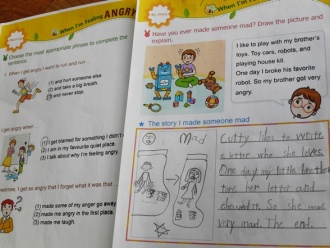 When I'm Feeling ANGRY
Choose the most appropriate phrase to complete the
sentence.
1. When I get angry, I want to run and run ...
(1) and hurt someone else.
(2) and take a big breath.
and never stop.
get angry when ...
(1) I get blamed for something I didn't
(2) I am in my favourite quiet place.
(3) I talk about why I'm feeling angry.
I get so angry that I forget what it was that ...
(1) made some of my anger go away.
(2) made me angry in the first place.
(3) made me laugh.
When I'm Feeling
Have you ever made someone mad? Draw the picture and
explain.
I like to play with my brother's
toys. Toy cars, robots, and
playing house kit.
One day I broke his favorite
robot. So my brother got very
angry.
The story I made someone mad
Mad
Cutty likes to write
a letter who she loves.
One day my little brother
tore her letter and
chewed it. So she was
very mad. The end.